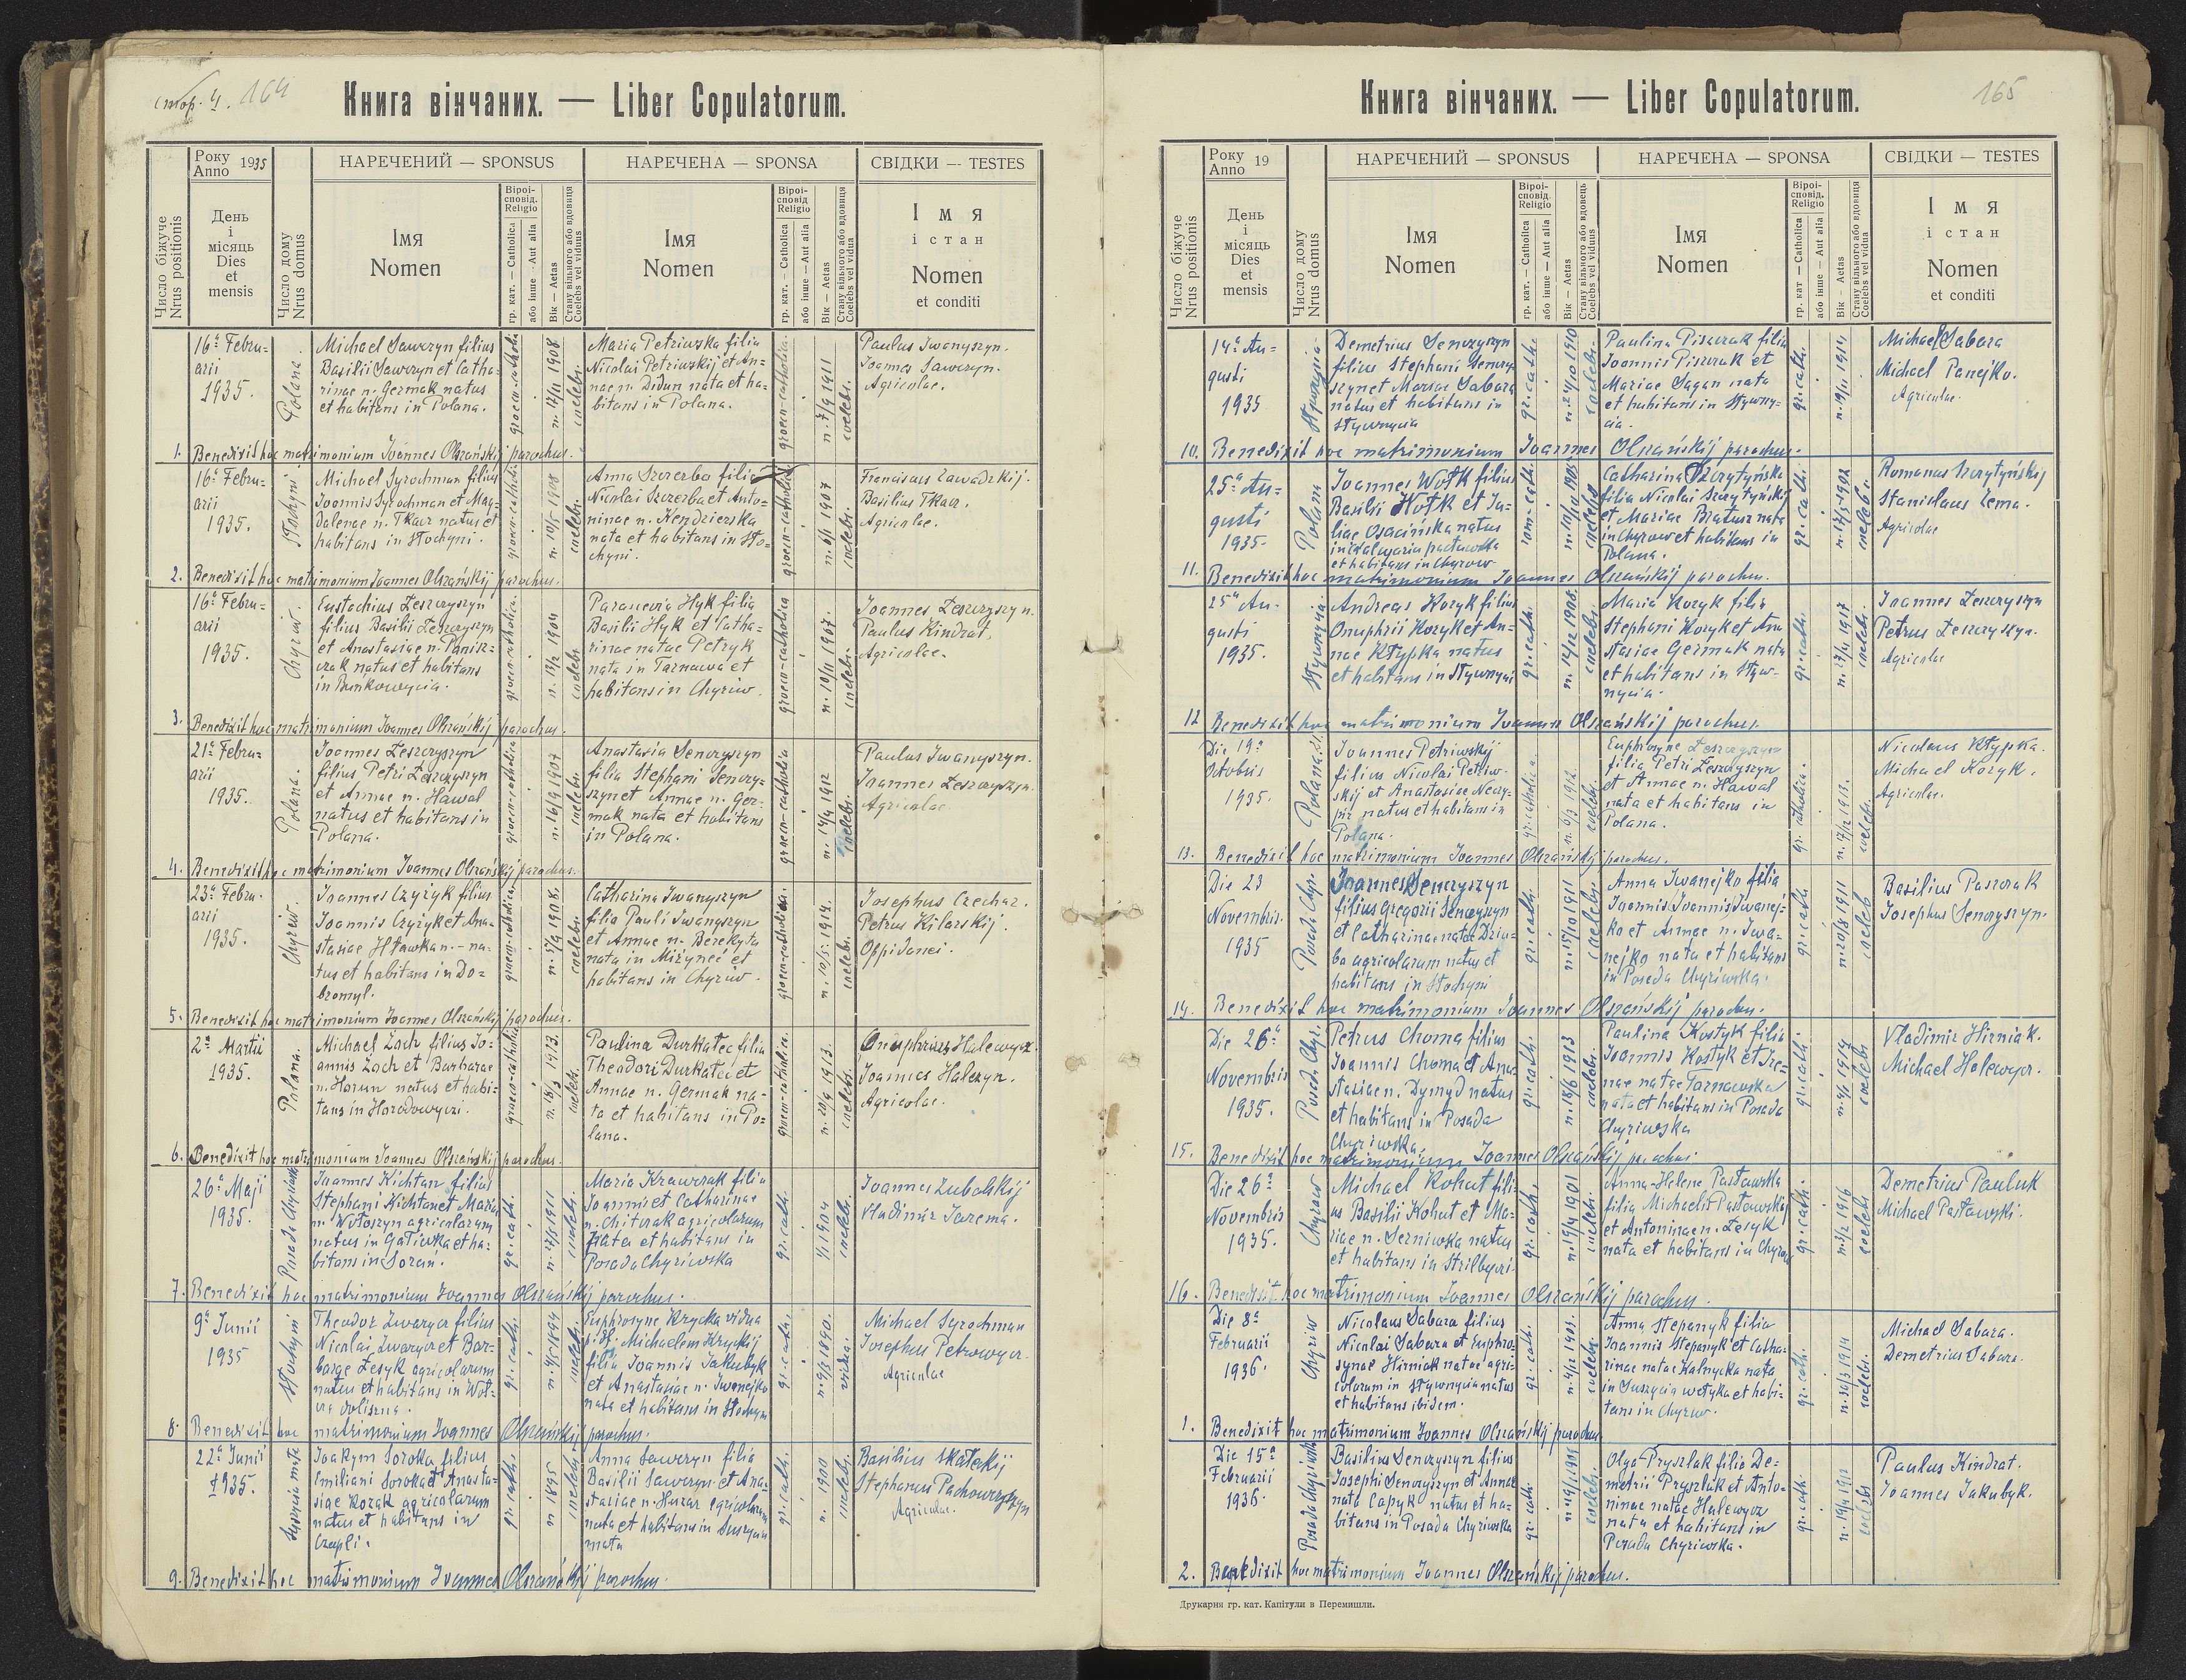 стор. 4. 164
Книга вінчаних. — Liber Copulatorum.
Року
Anno 1935
НАРЕЧЕНИЙ — SPONSUS
НАРЕЧЕНА — SPONSA
СВІДКИ — TESTES
Число біжуче
Nrus positionis
День
і
місяць
Dies
et
mensis
Число дому
Nrus domus
Імя
Nomen
Віроі-
сповід.
Religio
гр. кат. — Catholica
або інше - Aut alia
Вік — Aetas
Стану вільного або вдовець
Coelebs vel viduus
Імя
Nomen
Віроі-
сповід
Religio
гр. кат. — Catholica
або інше — Aut alia
Вік — Aetas
Стану вільного або вдовиця
Coelebs vel vidua
Імя
і стан
Nomen
et conditi
16ª Febru=
arii
1935.
Polana.
Michael Sawczyn filius
Basilii Sawczyn et Catha=
rinae n. Germak natus
et habitans in Polana.
graeco-catholica
n. 12/11 1908
coelebs.
Maria Petriwska filia
Nicolai Petriwskij et An=
nae n. Didun nata et ha=
bitans in Polana.
graeco-catholica.
n. 7/9 1911
coelebs.
Paulus Iwanyszyn.
Joannes Sawczyn.
Agricolae.
1. Benedixit hoc matrimonium Joannes Olszańskij parochus.
16ª Febru=
arii
1935.
Słochyni
Michael Syrochman filius
Joannis Syrochman et Mag=
dalenae n. Tkacz natus et
habitans in Słochyni.
graeco-catholica
n. 10/5 1908
coelebs
Anna Szczerba filia
Nicolai Szczerba et Anto=
ninae n. Kendzierska
nata et habitans in Sło=
chyni.
graeco-catholica
n. 6/1 1907
coelebs.
Franciscus Zawadzkij.
Basilius Tkacz.
Agricolae.
2. Benedixit hoc matrimonium Joannes Olszańskij parochus.
16ª Febru=
arii
1935.
Chyriw.
Eustachius Leszczyszyn
filius Basilii Leszczyszyn
et Anastasiae n. Panisz=
czak natus et habitans
in Bunkowycia.
graeco-catholica.
n. 13/2 1904
coelebs
Parascevia Hyk filia
Basilii Hyk et Catha=
rinae natae Petryk
nata in Tarnawa et
habitans in Chyriw.
graeco-catholica
n. 10/11 1907.
coelebs.
Joannes Leszczyszyn.
Paulus Kindrat.
Agricolae.
3. Benedixit hoc matrimonium Joannes Olszańskij parochus.
21ª Febru=
arii
1935.
Polana.
Joannes Leszczyszyn
filius Petri Leszczyszyn
et Annae n. Hawal
natus et habitans in
Polana.
graeco-catholica
n. 16/9 1907
coelebs
Anastasia Senczyszyn
filia Stephani Senczy=
szyn et Annae n. Ger=
mak nata et habitans
in Polana.
graeco-catholica
n. 14/4 1912
coelebs.
Paulus Iwanyszyn.
Joannes Leszczyszyn.
Agricolae
4. Benedixit hoc matrimonium Joannes Olszańskij parochus.
23ª Febru.
arii
1935.
Chyriw.
Joannes Czyżyk filius
Joannis Czyżyk et Ana=
stasiae Hławka n. - na=
tus et habitans in Do=
bromyl.
graeco-catholica
n. 5/9 1908.
coelebs.
Catharina Iwanyszyn
filia Pauli Iwanyszyn
et Annae n. Berekyta
nata in Miżynec et
habitans in Chyriw.
graeco-catholica.
n. 10/5 1914.
coelebs.
Josephus Czechar.
Petrus Kilarskij.
Oppidanei.
5. Benedixit hoc matrimonium Joannes Olszańskij parochus.
2ª Martii
1935.
Polana.
Michael Zoch filius Jo=
annis Zoch et Barbarae
n. Horun natus et habi=
tans in Horodowyczi.
graeco-catholica
n. 18/3 1913.
coelebs
Paulina Durkatec filia
Theodori Durkatec et
Annae n. Germak na=
ta et habitans in Po=
lana.
graeco-catholica.
n. 20/9 1913.
coelebs.
Onuphrius Halewycz.
Joannes Halczyn.
Agricolae.
6. Benedixit hoc matrimonium Joannes Olszańskij parochus.
26ª Maji
1935.
Joannes Kichtan filius
Stephani Kichtan et Maria
n. Wołoszyn agricolarum
natus in Gałiwka et ha=
bitans in Soran.
gr. cath.
n. 27/1 1911
coelebs.
Maria Krawczak filia
Joannis et Catharinae
n. Chitnak agricolarum
nata et habitans in
Posada Chyriwska
gr. cath.
1/1 1904
coelebs.
Joannes Lubolskij
Vladimir Jarema.
7. Benedixit hoc matrimonium Joannes Olszańskij parochus.
9ª Junii
1935
Słochyni
Theodor Zwarycz filius
Nicolai Zwarycz et Bar=
barae Lesyk agricolarum
natus et habitans in Woł=
cza doliszna.
gr. cath.
n. 4/6 1894
coelebs.
Euphrosyne Krycka vidua
p. df. Michaelem Kryckij
filia Joannis Jakubyk
et Anastasiae n. Iwanejko
nata et habitans in Słochyni
gr. cath.
n. 9/3 1890.
vidua.
Michael Syrochman
Josephus Petrowycz.
Agricolae
8. Benedixit hoc matrimonium Joannes Olszańskij parochus.
22ª Junii
1935.
Joakym Soroka filius
Emiliani Soroka et Anasta=
siae Kozak agricolarum
natus et habitans in
Czapli.
gr. cath.
n 1895
coelebs
Anna Sawczyn filia
Basilii Sawczyn et Ana=
stasiae n. Huzar agricolarum
nata et habitans in Suszycia
mała
gr. cath.
n. 1900
coelebs.
Basilius Skałckij
Stephanus Pachowczyszyn
Agricolae.
9. Benedixit hoc matrimonium Joannes Olszańskij parochus.
165
Книга вінчаних. — Liber Copulatorum.
Року
Anno 19
НАРЕЧЕНИЙ — SPONSUS
НАРЕЧЕНА — SPONSA
СВІДКИ — TESTES
Число біжуче
Nrus positionis
День
і
місяць
Dies
et
mensis
Число дому
Nrus domus
Імя
Nomen
Віроі-
сповід.
Religio
гр. кат. — Catholica
або інше — Aut alia
Вік — Aetas
Стану вільного або вдовець
Coelebs vel viduus
Імя
Nomen
Віроі-
сповід.
Religio
гр. кат — Catholica
або інше — Aut alia
Вік - Aetas
Стану вільного або вдовиця
Coelebs vel vidua
Імя
і стан
Nomen
et conditi
14ª Au=
gusti
1935
Demetrius Senczyszyn
filius Stephani Senczy
szyn et Mariae Sabara
natus et habitans in
Stywnycia
gr. cath.
n. 24/10 1910
coelebs.
Paulina Piszczak filia
Joannis Piszczak et
Mariae Sagan nata
et habitans in Stywny=
cia.
gr. cath.
n. 19/11 1914
Michael Sabara
Michael Panejko.
Agricolae
10. Benedixit hoc matrimonium Joannes Olszańskij parochus.
25ª Au=
gusti
1935.
Polana
Joannes Wołk filius
Basilii Wołk et Ju=
liae Osacińska natus
in Kalwaria pacławska
et habitans in Chyrow
rom-cath.
coelebs
Catharina Szczytyńska
filia Nicolai Szczytyńskij
et Mariae Bratusz nata
in Chyrow et habitans in
Polana.
gr. cath.
n. 17/5 1902
coelebs.
Romanus Szczytyńskij
Stanislaus Lema.
Agricolae
11. Benedixit hoc matrimonium Joannes Olszańskij parochus.
25ª Au=
gusti
1935.
Stywnycia.
Andreas Kozyk filius
Onuphrii Kozyk et An=
nae Kłypka natus
et habitans in Stywnyci
gr. cath.
n. 14/12 1908.
coelebs.
Maria Kozyk filia
Stephani Kozyk et Ana
stasiae Germak nata
et habitans in Styw=
nycia.
gr. cath.
n. 27/4 1917
coelebs.
Joannes Leszczyszyn
Petrus Leszczyszyn.
Agricolae
12 Benedixit hoc matrimonium Joannes Olszańskij parochus.
Die 19ª
Octobris
1935.
Joannes Petriwskij
filius Nicolai Petriw=
skij et Anastasiae Neczy=
pir natus et habitans in
Polana.
gr. catholica.
n. 6/3 1912.
coelebs
Euphrosyne Leszczyszyn
filia Petri Leszczyszyn
et Annae n. Hawal
nata et habitans in
Polana.
gr. catholica.
n. 17/12 1913.
coelebs.
Nicolaus Kłypka.
Michael Kozyk.
Agricolae.
13. Benedixit hoc matrimonium Joannes Olszańskij parochus.
Die 23
Novembris.
1935
Posada Chyr.
Joannes Senczyszyn
filius Gregorii Senczyszyn
et Catharinae natae Dziu=
ba agricolarum natus et
habitans in Słochyni
gr. cath.
n. 15/10 1911
coelebs
Anna Iwanejko filia
Joannis Joannis Iwanej=
ko et Annae n. Iwa=
nejko nata et habitans
in Posada Chyriwska.
gr. cath
n. 20/8 1911
coelebs
Basilius Paszczak
Josephus Senczyszyn.
14. Benedixit hoc matrimonium Joannes Olszańskij parochus.
Die 26ª
Novembris
1935.
Posada Chyr.
Petrus Choma filius
Joannis Choma et Ana=
stasiae n. Dymyd natus
et habitans in Posada
Chyriwska.
gr. cath.
n. 18/6 1913
coelebs.
Paulina Kostyk filia
Joannis Kostyk et Ire=
nae natae Tarnawska
nata et habitans in Posada
Chyriwska
gr. cath.
n. 4/2 1914
coelebs
Vladimir Hirniak.
Michael Halewycz.
15. Benedixit hoc matrimonium Joannes Olszańskij parochus
Die 26ª
Novembris
1935.
Chyrow
Michael Kohut fili=
us Basilii Kohut et Ma=
riae n. Serniwka natus
et habitans in Strilbyczi.
gr. cath.
n. 19/4 1901
coelebs.
Anna-Helene Pasławska
filia Michaelis Pasławskij
et Antoninae n. Lesyk
nata et habitans in Chyrow
gr. cath.
n. 3/2 1916
coelebs
Demetrius Pauluk
Michael Pasławskij.
16. Benedixit hoc matrimonium Joannes Olszańskij parochus.
Die 8ª
Februarii
1936.
Chyriw
Nicolaus Sabara filius
Nicolai Sabara et Euphro=
synae Hirniak natae agri=
colarum in Stywnycia natus
et habitans ibidem.
gr. cath.
coelebs
Anna Stepanyk filia
Joannis Stepanyk et Catha=
rinae natae Kalnycka nata
in Suszycia wełyka et habi=
tans in Chyriw.
gr. cath.
n. 30/3 1914
coelebs.
Michael Sabara.
Demetrius Sabara.
1. Benedixit hoc matrimonium Joannes Olszańskij parochus
Die 15ª
Februarii
1936.
Posada Chyriwska
Basilius Senczyszyn filius
Josephi Senczyszyn et Annae
nata Capyk natus et ha=
bitans in Posada Chyriwska
gr. cath.
coelebs.
Olga Pryszlak filia De=
metrii Pryszlak et Anto=
ninae natae Halewycz
nata et habitans in
Posada Chyriwska.
gr. cath.
n. 19/4 1912
coelebs
Paulus Kindrat.
Joannes Jakubyk.
2. Benedixit hoc matrimonium Joannes Olszańskij parochus.
Друкарня гр. кат. Капітули в Перемишли.